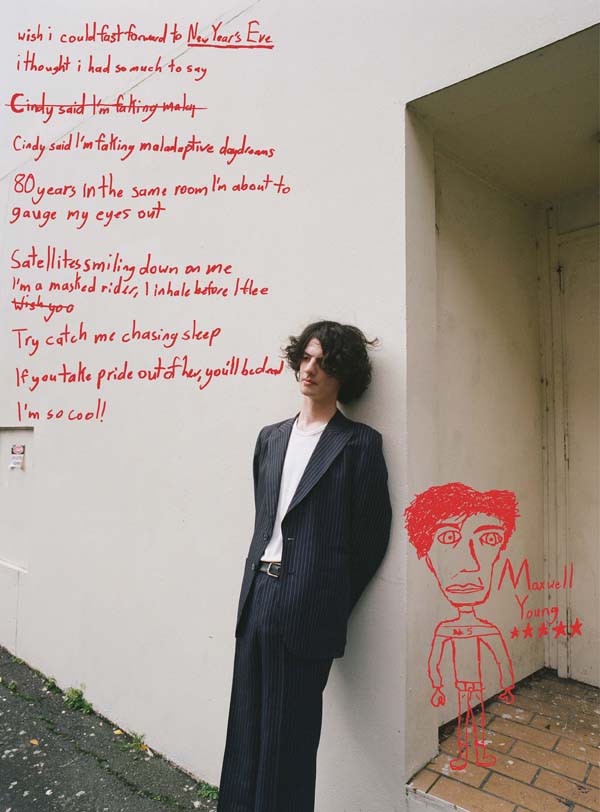 wish i could fast forward to New Year's Eve
i thought i had so much to say
Cindy said I'm faking malap
Cindy said I'm faking maladaptive daydreams
80 years in the same room I'm about to
gauge my eyes out
Satellites smiling down on me
I'm a masked rider, I inhale before I flee
Wish you
Try catch me chasing sleep
If you take pride out of her, you'll be dead
I'm so cool!
Maxwell
Young